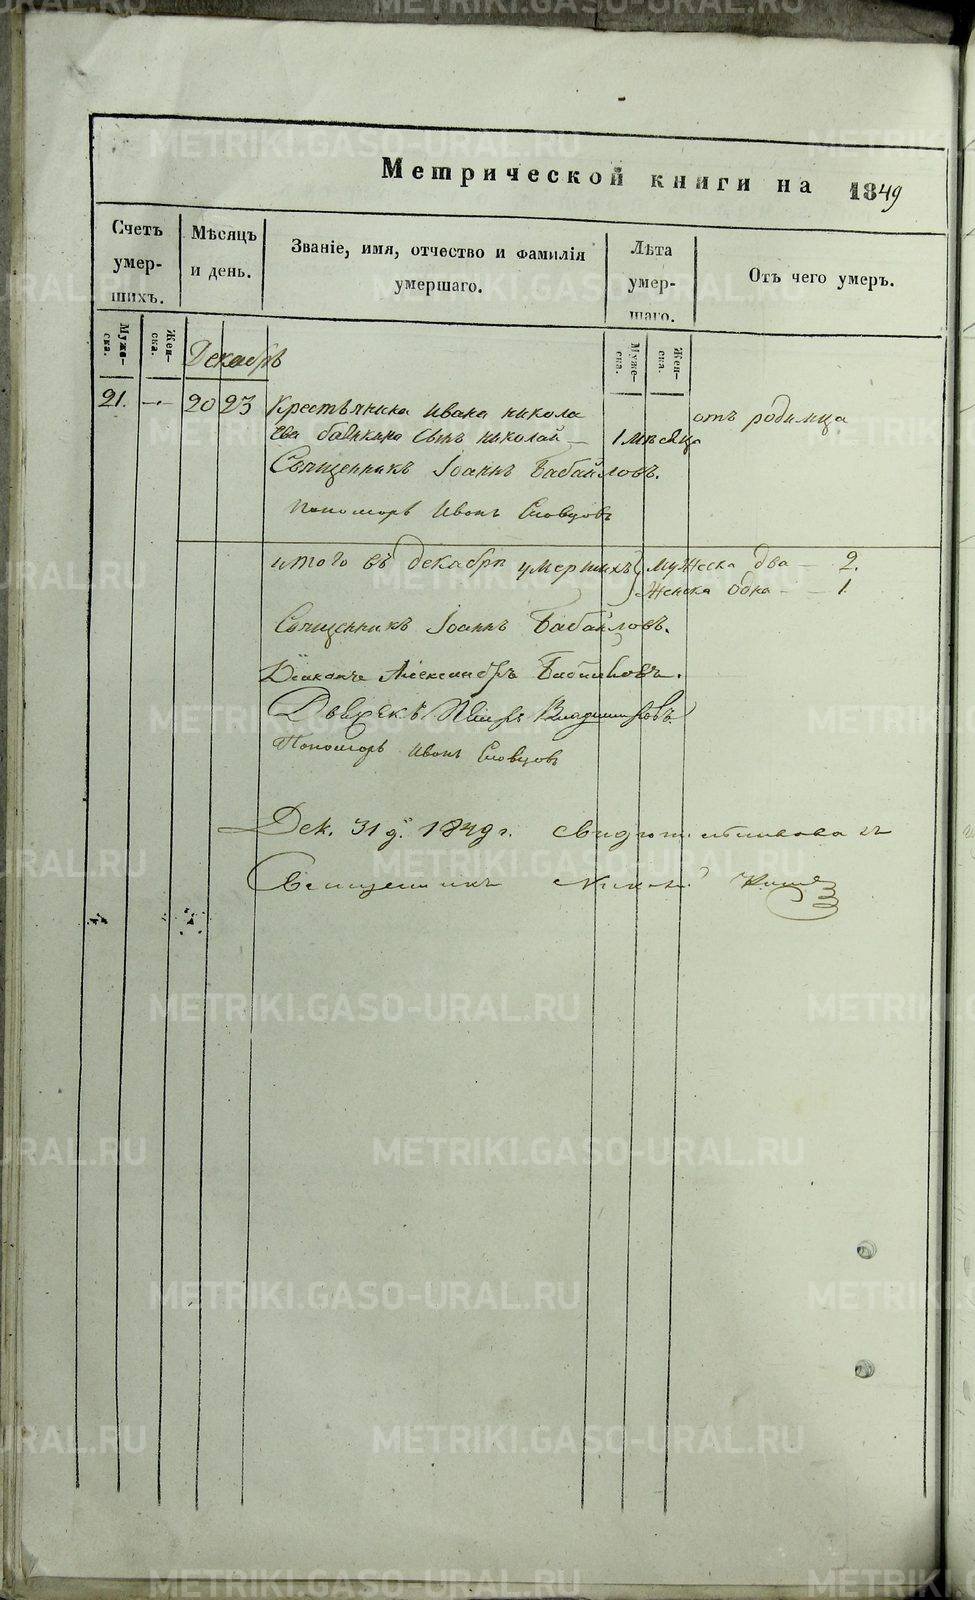 Метрической книги на 1849
Счетъ умер- шихъ.
Мѣсяцъ и день.
Званіе, имя, отчество и фамилія умершаго.
Лѣта умер- шаго.
Отъ чего умеръ.
Муже- ска.
Жен- ска.
Муже- ска.
Жен- ска.
Декабрь
21. — 20 23 Крестьянина Ивана Никола
ева сынъ Николай — 1 мѣсяца
отъ родимца
Священникъ Іоаннъ Бабайловъ.
Пономарь Иванъ Словцовъ
итого въ декабрѣ умершихъ
Мужеска два — 2.
Женска одна — 1
Священникъ Іоаннъ Бабайловъ.
Діаконъ Александръ
Дьячекъ Петръ Владимировъ
Пономарь Иванъ Словцовъ
Дек. 31 д. 1849 г. свидѣтельствовалъ
Священникъ
METRIKI.GASO-URAL.RU